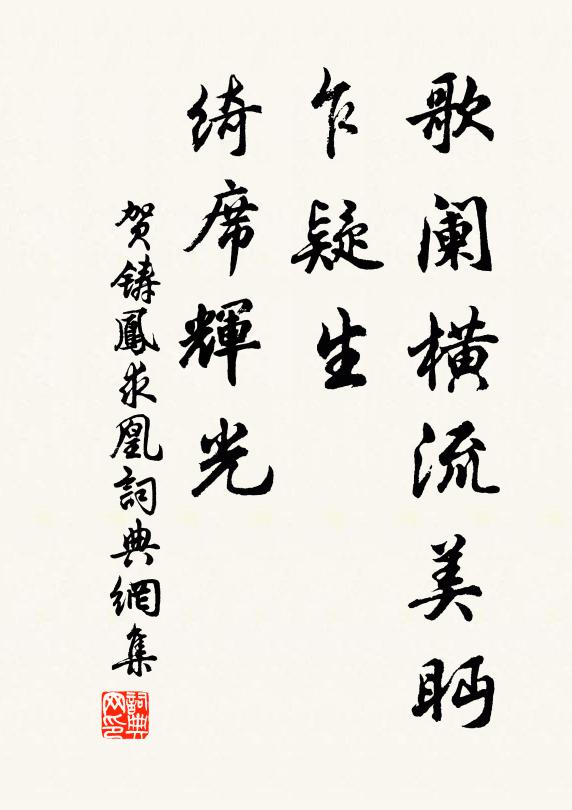 歌阑横流美眄
乍疑生
绮席輝光
贺鑄鳳求凰詞典網集
詞典网印